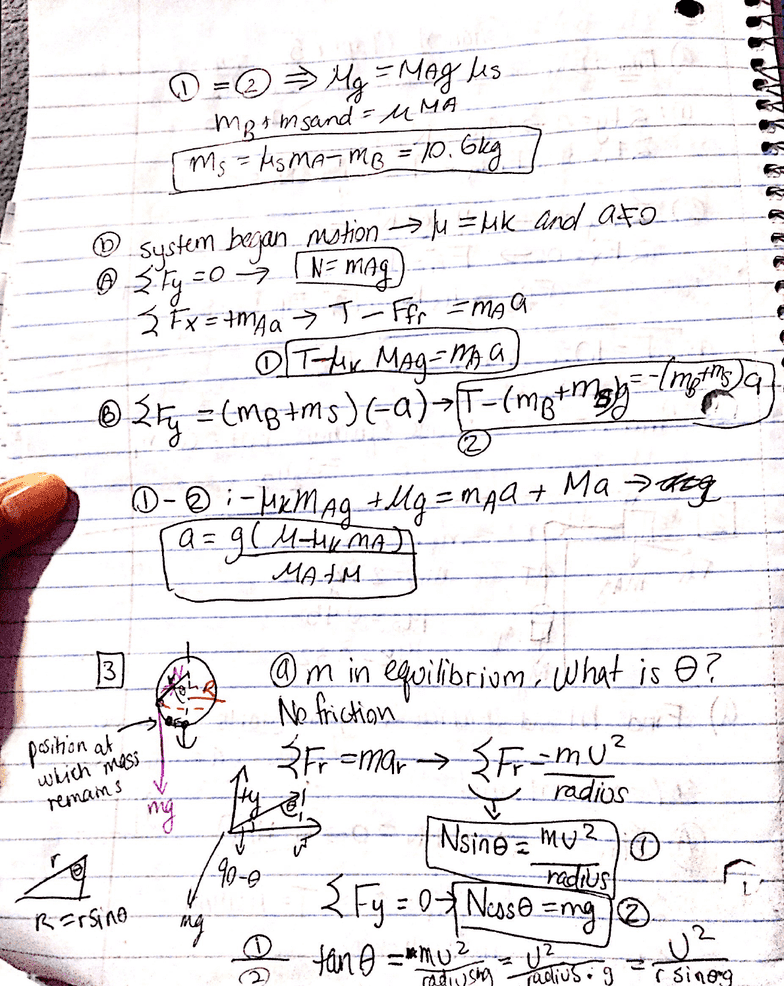 ① = ② ⇒ Mg = MAg μs
mB + msand = μ MA
mS = μSmA - mB = 10.6kg
ⓑ system began motion → μ = μk and a≠0
Ⓐ ΣFy = 0 → N = mAg
ΣFx = +mAa → T - Ffr = mAa
① T - μk MAg = mAa
Ⓑ ΣFy = (mB+mS)(-a) → T - (mB+mS)g = -(mB+mS)a
②
① - ② : -μkmAg + Mg = mAa + Ma →
a = g(M-μkmA)
MA+M
3 ⓐ m in equilibrium. What is θ?
No friction
N θ R
position at
which mass
remains
mg
ΣFr = mar → ΣFr = mU²
radius
+y θ
90-θ
mg
Nsinθ = mU² ①
radius
r θ
R = rsinθ
ΣFy = 0 → Ncosθ = mg ②
①
② tanθ = mU² = U² = U²
radiusmg radius·g r sinθ·g